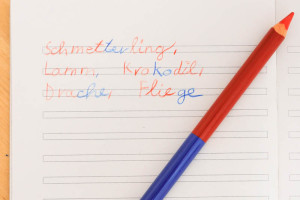 Schmetterling,
Lamm, Krakodil,
Drache, Fliege